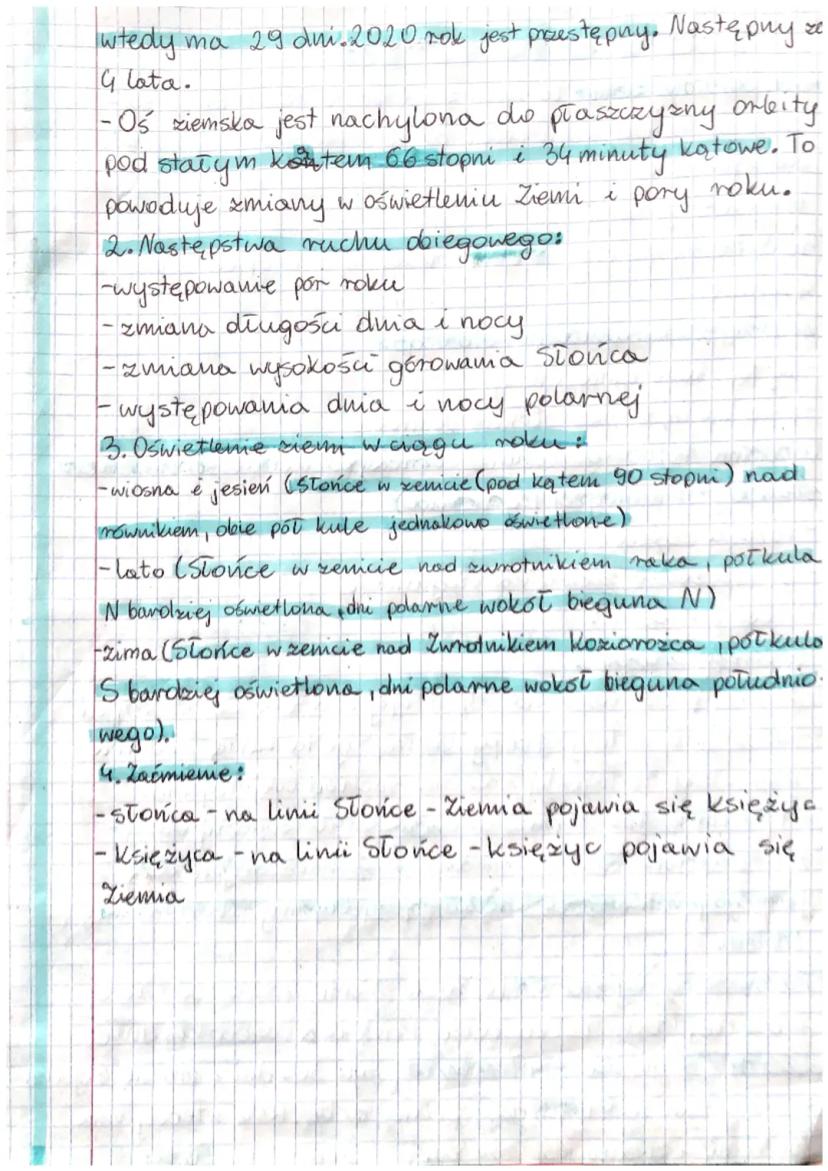 wtedy ma 29 dni. 2020 rok jest przestępny. Następny ze
4 lata.
- Oś ziemska jest nachylona do płaszczyzny orbity
pod stałym kątem 66 stopni i 34 minuty kątowe. To
powoduje zmiany w oświetleniu Ziemi i pory roku.
2. Następstwa ruchu obiegowego:
- występowanie pór roku
- zmiana długości dnia i nocy
- zmiana wysokości górowania Słońca
- występowania dnia i nocy polarnej
3. Oświetlenie ziemi w ciągu roku:
- wiosna i jesień (Słońce w zenicie (pod kątem 90 stopni) nad
równikiem, obie pół kule jednakowo oświetlone)
- lato (Słońce w zenicie nad zwrotnikiem raka, półkula
N bardziej oświetlona, dni polarne wokół bieguna N)
- zima (Słońce w zenicie nad Zwrotnikiem Koziorożca, półkula
S bardziej oświetlona, dni polarne wokół bieguna południo-
wego).
4. Zaćmienie:
- słońca - na linii Słońce - Ziemia pojawia się księżyc
- Księżyca - na linii Słońce - księżyc pojawia się
Ziemia